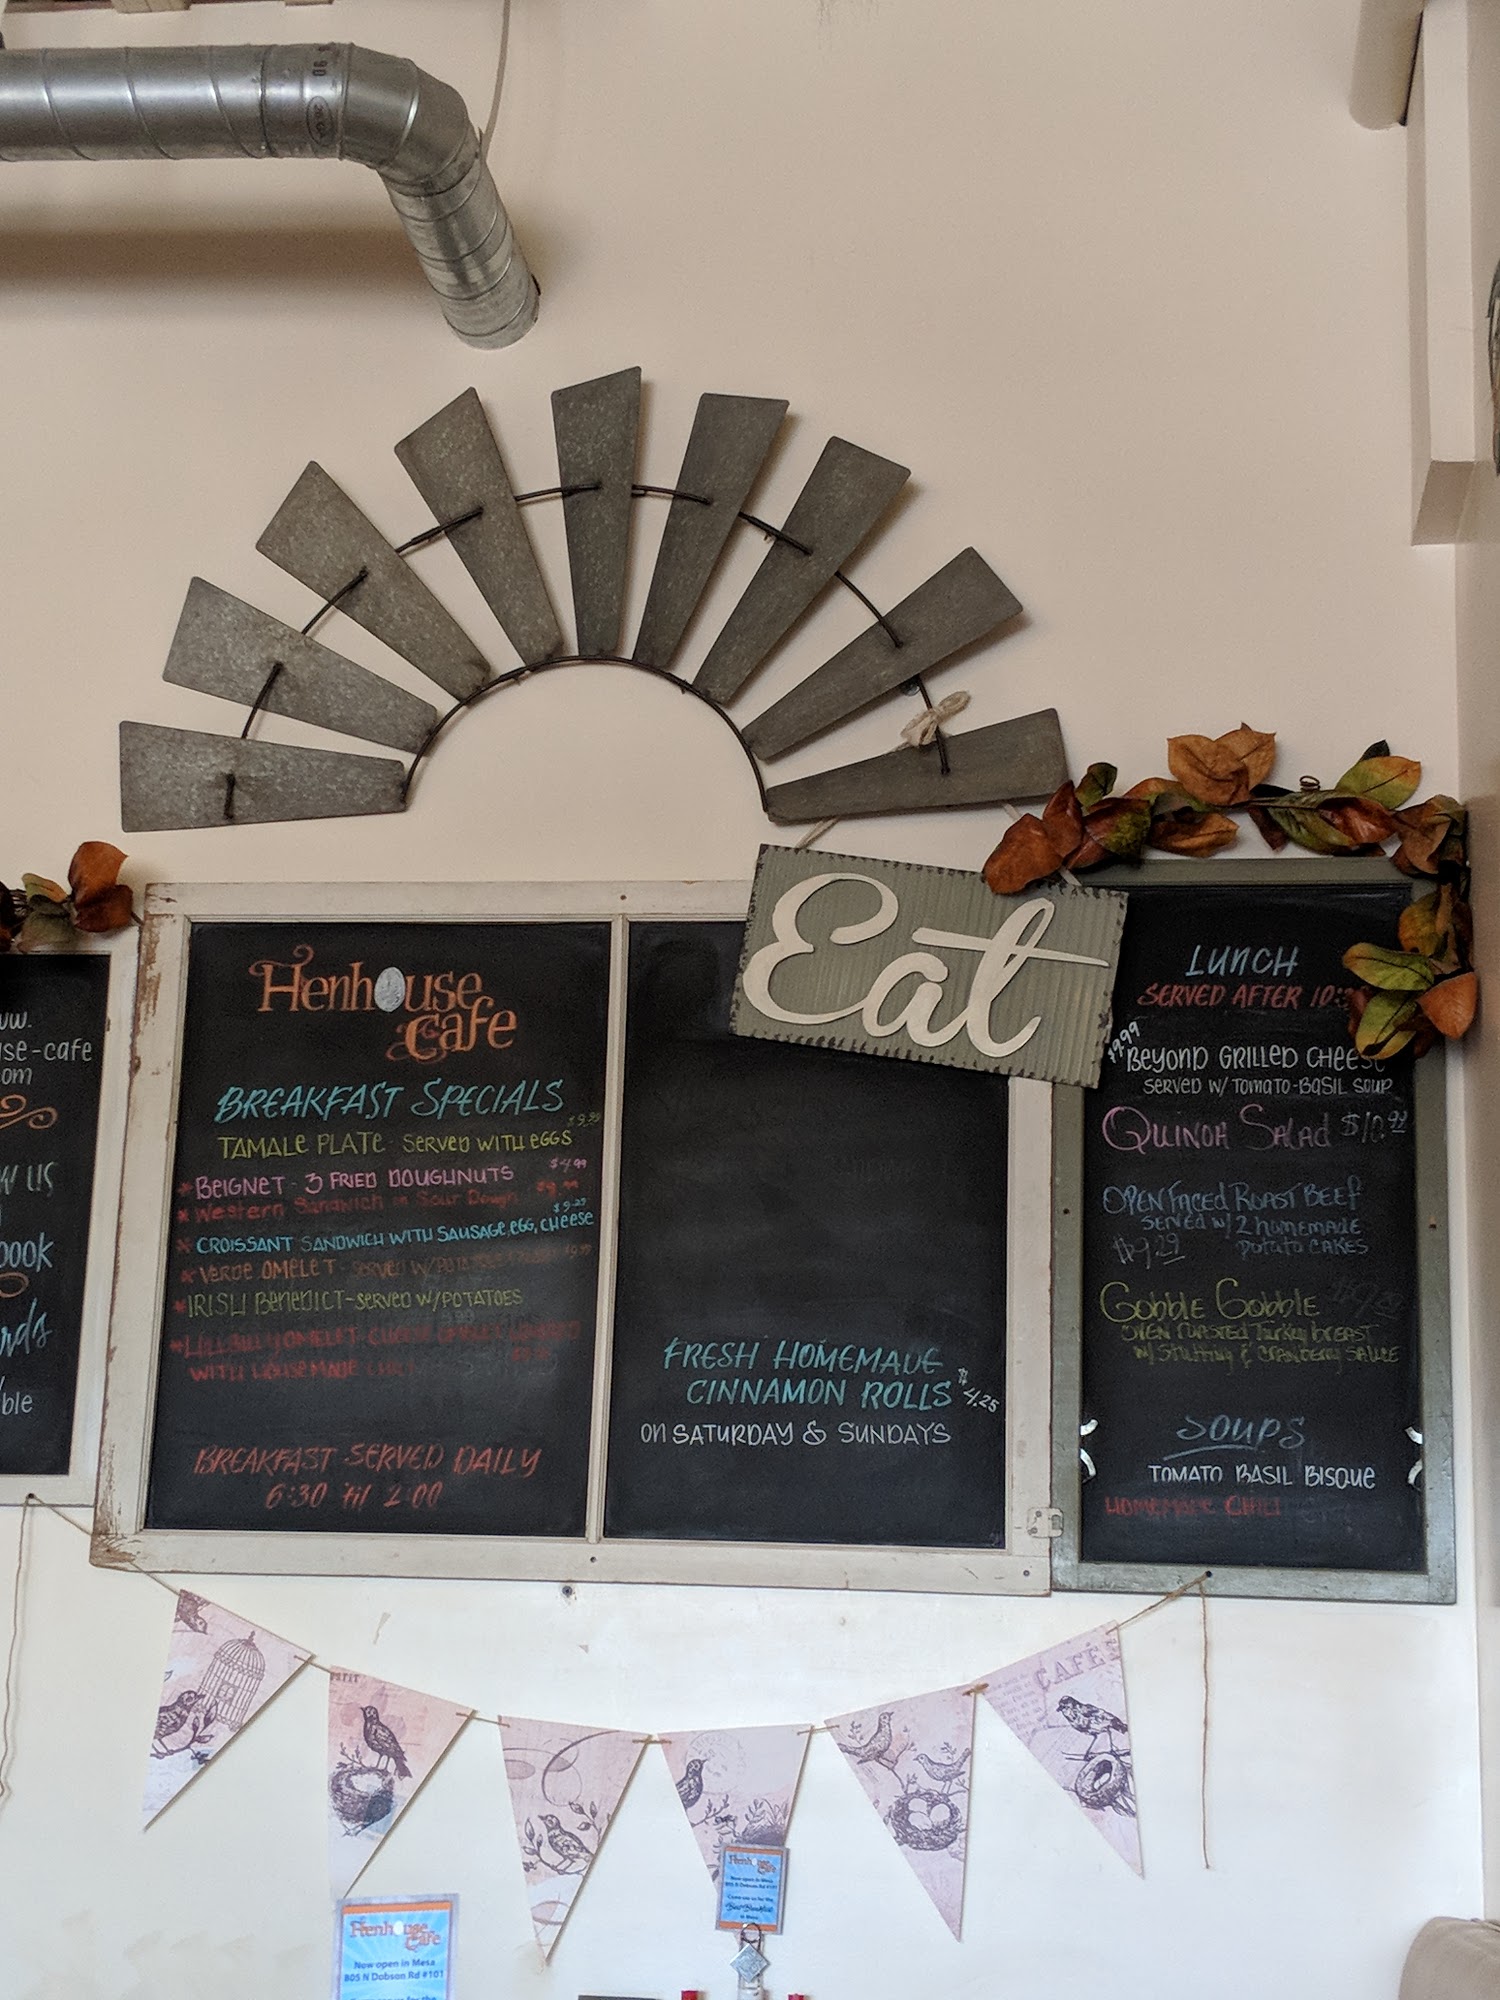 se-cafe
om
W US
book
rds
ble
Henhouse
Cafe
BREAKFAST SPECIALS
TAMALE PLATE - SERVED WITH EGGS $9.99
* BEIGNET - 3 FRIED DOUGHNUTS $4.99
* Western Sandwich on Sour Dough
* CROISSANT SANDWICH WITH SAUSAGE, EGG, CHEESE $9.25
* VERDE OMELET - SERVED W/POTATOES
* IRISH BENEDICT - SERVED W/POTATOES
* HILLBILLY OMELET - CHEESE OMELET
WITH HOUSEMADE CHILI
BREAKFAST SERVED DAILY
6:30 til 2:00
Eat
FRESH HOMEMADE
CINNAMON ROLLS $4.25
on SATURDAY & SUNDAYS
LUNCH
SERVED AFTER
$9.99
BEYOND GRILLED CHEESE
SERVED W/ TOMATO-BASIL SOUP
QUINOA SALAD $10.99
OPEN FACED ROAST BEEF
SERVED W/ 2 HOMEMADE
$9.29 POTATO CAKES
Gobble Gobble
OVEN ROASTED TURKEY BREAST
w/ Stuffing & CRANBERRY SAUCE
SOUPS
TOMATO BASIL BISQUE
HOMEMADE CHILI
CAFÉ
Henhouse
Cafe
Now open in Mesa
805 N Dobson Rd #101
Henhouse
Cafe
Now open in Mesa
805 N Dobson Rd #101
Come see us for the
Best Breakfast
in Mesa